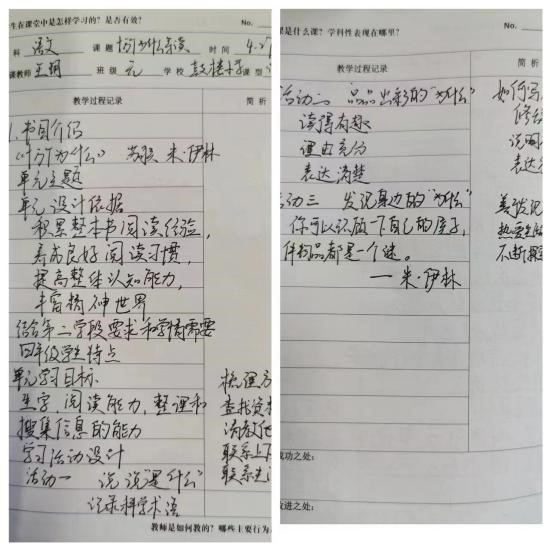 生在课堂中是怎样学习的？是否有效？
No.
科 语文 课题 十万个为什么导读 时间 4.2
课教师 王玥 班级 元 学校 鼓楼小学 课型
教学过程记录
简析
1.书目介绍
《十万个为什么》 苏联 米·伊林
单元主题
单元设计依据
积累整本书阅读经验，
养成良好阅读习惯，
提高整体认知能力，
丰富精神世界
结合第二学段要求和学情需要
四年级学生特点
单元学习目标
生字，阅读能力，整理和
搜集信息的能力
学习活动设计
活动一 说说"是什么"
记录科学术语
梳理方
查找资料
联系上下
联系生活
教师是如何教的？哪些主要行为
果是什么课？学科性表现在哪里？
No.
教学过程记录
简析
活动二 品品出彩的"为什么"
读得有趣
理由充分
表达清楚
动三 发现身边的"为什么"
你可以环顾一下自己的屋子，
件物品都是一个谜。
——米·伊林
如何写
修辞
说明
表达
善发现
热爱生
不断探
成功之处：
改进之处：